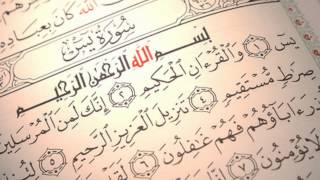 الله كان بعباده
سورة يس
بسم الله الرحمن الرحيم
يس ١ والقرءان الحكيم ٢ إنك لمن المرسلين
صرط مستقيم ٤ تنزيل العزيز الرحيم ٥
ءاباؤهم فهم غفلون ٦ لقد
لا يؤمنون ٧